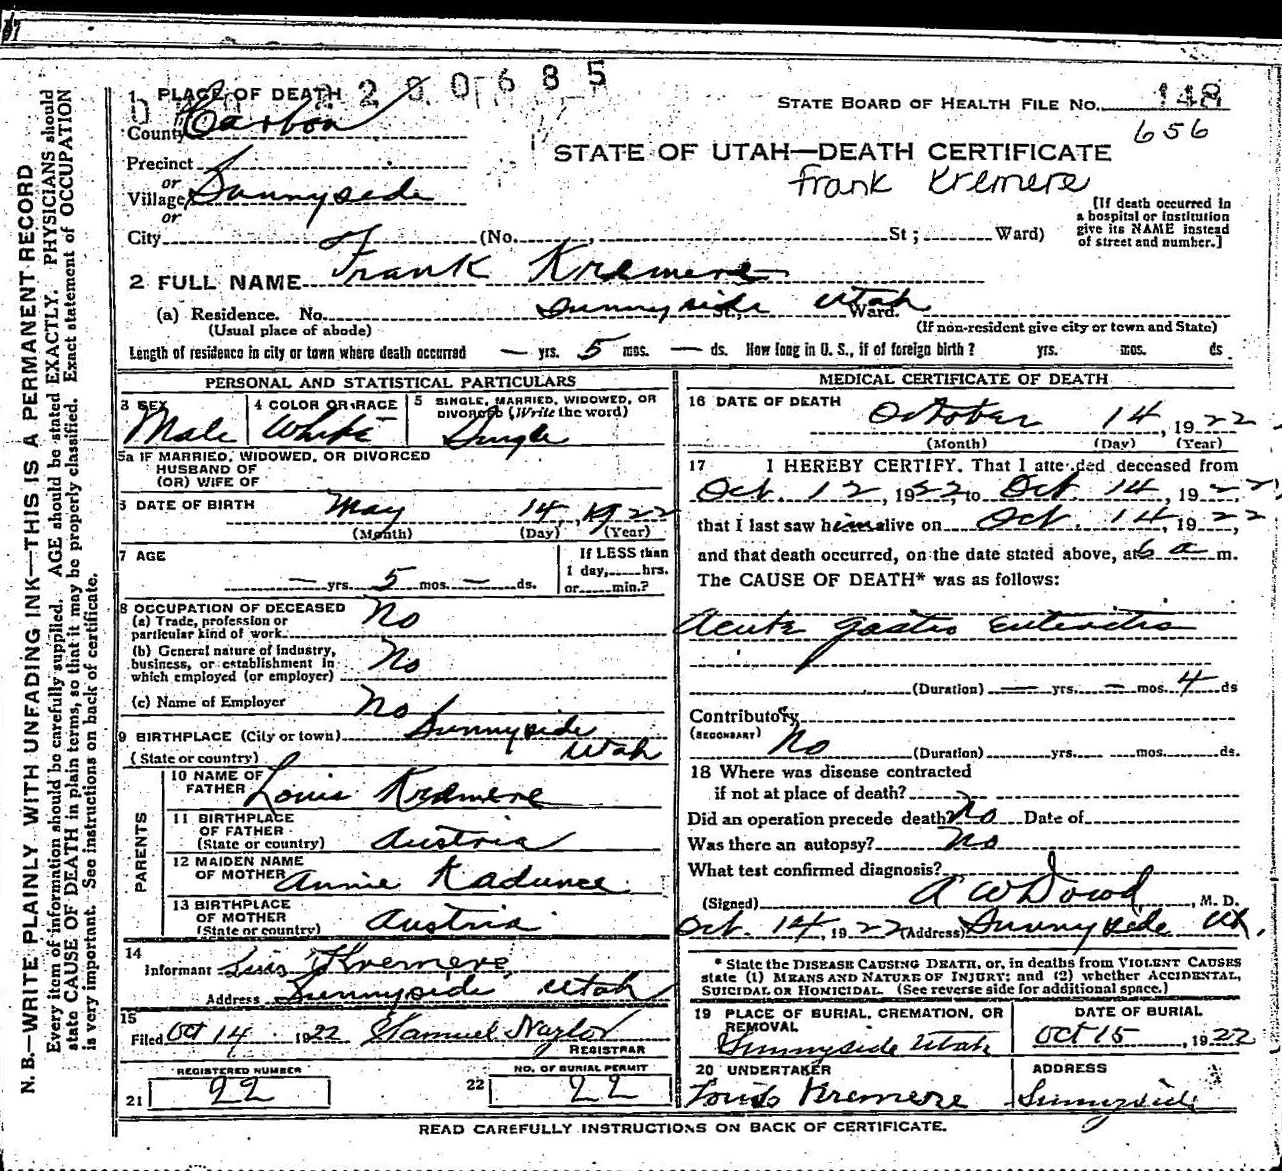 2 2 8 0 6 8 5
1 PLACE OF DEATH
County Carbon
STATE BOARD OF HEALTH FILE NO. 148
656
Precinct
or
Village Sunnyside
or
STATE OF UTAH—DEATH CERTIFICATE
Frank Kremere
[If death occurred in
a hospital or institution
give its NAME instead
of street and number.]
City (No. , St ; Ward)
2 FULL NAME Frank Kremere
(a) Residence. No. Sunnyside Utah St., Ward.
(Usual place of abode) (If non-resident give city or town and State)
Length of residence in city or town where death occurred — yrs. 5 mos. — ds. How long in U. S., if of foreign birth? yrs. mos. ds
PERSONAL AND STATISTICAL PARTICULARS
3 SEX 4 COLOR OR RACE 5 SINGLE, MARRIED, WIDOWED, OR
DIVORCED (Write the word)
Male White Single
5a IF MARRIED, WIDOWED, OR DIVORCED
HUSBAND OF
(OR) WIFE OF
6 DATE OF BIRTH May 14, 1922
(Month) (Day) (Year)
7 AGE If LESS than
1 day, hrs.
— yrs. 5 mos. — ds. or min.?
8 OCCUPATION OF DECEASED
(a) Trade, profession or
particular kind of work No
(b) General nature of industry,
business, or establishment in
which employed (or employer) No
(c) Name of Employer No
9 BIRTHPLACE (City or town) Sunnyside
(State or country) Utah
PARENTS
10 NAME OF
FATHER Louis Kremere
11 BIRTHPLACE
OF FATHER
(State or country) Austria
12 MAIDEN NAME
OF MOTHER Annie Kadunce
13 BIRTHPLACE
OF MOTHER
(State or country) Austria
14
Informant Luis Kremere
Address Sunnyside Utah
15
Filed Oct 14 1922 Samuel Naylor
REGISTRAR
REGISTERED NUMBER NO. OF BURIAL PERMIT
21 22 22 22
MEDICAL CERTIFICATE OF DEATH
16 DATE OF DEATH October 14, 1922
(Month) (Day) (Year)
17 I HEREBY CERTIFY. That I attended deceased from
Oct. 12, 1922, to Oct 14, 1922,
that I last saw him alive on Oct. 14, 1922,
and that death occurred, on the date stated above, at 6 a m.
The CAUSE OF DEATH* was as follows:
Acute gastro enteritis
(Duration) — yrs. — mos. 4 ds
Contributory
(SECONDARY) No (Duration) yrs. mos. ds.
18 Where was disease contracted
if not at place of death?
Did an operation precede death No Date of
Was there an autopsy? No
What test confirmed diagnosis?
(Signed) A W Dowd, M. D.
Oct. 14, 1922 (Address) Sunnyside Ut.
* State the DISEASE CAUSING DEATH, or, in deaths from VIOLENT CAUSES
state (1) MEANS AND NATURE OF INJURY; and (2) whether ACCIDENTAL,
SUICIDAL OR HOMICIDAL. (See reverse side for additional space.)
19 PLACE OF BURIAL, CREMATION, OR
REMOVAL
Sunnyside Utah
DATE OF BURIAL
Oct 15, 1922
20 UNDERTAKER
Louis Kremere
ADDRESS
Sunnyside
READ CAREFULLY INSTRUCTIONS ON BACK OF CERTIFICATE.
N. B.—WRITE PLAINLY WITH UNFADING INK—THIS IS A PERMANENT RECORD
Every item of information should be carefully supplied. AGE should be stated EXACTLY. PHYSICIANS should
state CAUSE OF DEATH in plain terms, so that it may be properly classified. Exact statement of OCCUPATION
is very important. See instructions on back of certificate.